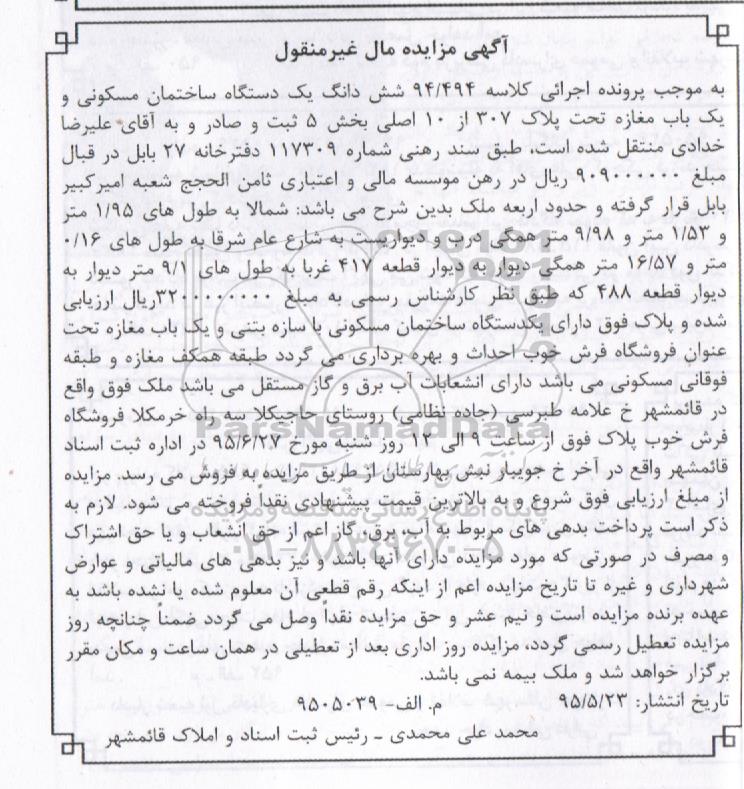 آگهی مزایده مال غیرمنقول
به موجب پرونده اجرائی کلاسه ۹۴/۴۹۴ شش دانگ یک دستگاه ساختمان مسکونی و
یک باب مغازه تحت پلاک ۳۰۷ از ۱۰ اصلی بخش ۵ ثبت و صادر و به آقای علیرضا
خدادی منتقل شده است. طبق سند رهنی شماره ۱۱۷۳۰۹ دفترخانه ۲۷ بابل در قبال
مبلغ ۹۰۹۰۰۰۰۰۰ ریال در رهن موسسه مالی و اعتباری ثامن الحجج شعبه امیرکبیر
بابل قرار گرفته و حدود اربعه ملک بدین شرح می باشد: شمالا به طول های ۱/۹۵ متر
و ۱/۵۳ متر و ۹/۹۸ متر همگی درب و دیواریست به شارع عام شرقا به طول های ۰/۱۶
متر و ۱۶/۵۷ متر همگی دیوار به دیوار قطعه ۴۱۷ غربا به طول های ۹/۱ متر دیوار به
دیوار قطعه ۴۸۸ که طبق نظر کارشناس رسمی به مبلغ ۳۲۰۰۰۰۰۰۰۰ریال ارزیابی
شده و پلاک فوق دارای یکدستگاه ساختمان مسکونی با سازه بتنی و یک باب مغازه تحت
عنوان فروشگاه فرش خوب احداث و بهره برداری می گردد طبقه همکف مغازه و طبقه
فوقانی مسکونی می باشد دارای انشعابات آب برق و گاز مستقل می باشد ملک فوق واقع
در قائمشهر خ علامه طبرسی (جاده نظامی) روستای حاجیکلا سه راه خرمکلا فروشگاه
فرش خوب پلاک فوق از ساعت ۹ الی ۱۲ روز شنبه مورخ ۹۵/۶/۲۷ در اداره ثبت اسناد
قائمشهر واقع در آخر خ جویبار نبش بهارستان از طریق مزایده به فروش می رسد. مزایده
از مبلغ ارزیابی فوق شروع و به بالاترین قیمت پیشنهادی نقداً فروخته می شود. لازم به
ذکر است پرداخت بدهی های مربوط به آب، برق، گاز اعم از حق انشعاب و یا حق اشتراک
و مصرف در صورتی که مورد مزایده دارای آنها باشد و نیز بدهی های مالیاتی و عوارض
شهرداری و غیره تا تاریخ مزایده اعم از اینکه رقم قطعی آن معلوم شده یا نشده باشد به
عهده برنده مزایده است و نیم عشر و حق مزایده نقداً وصل می گردد ضمناً چنانچه روز
مزایده تعطیل رسمی گردد، مزایده روز اداری بعد از تعطیلی در همان ساعت و مکان مقرر
برگزار خواهد شد و ملک بیمه نمی باشد.
تاریخ انتشار: ۹۵/۵/۲۳ م. الف- ۹۵۰۵۰۳۹
محمد علی محمدی ـ رئیس ثبت اسناد و املاک قائمشهر
ParsNamadData
پایگاه اطلاع رسانی مناقصه و مزایده
۰۲۱-۸۸۳۴۹۶۷۰-۵